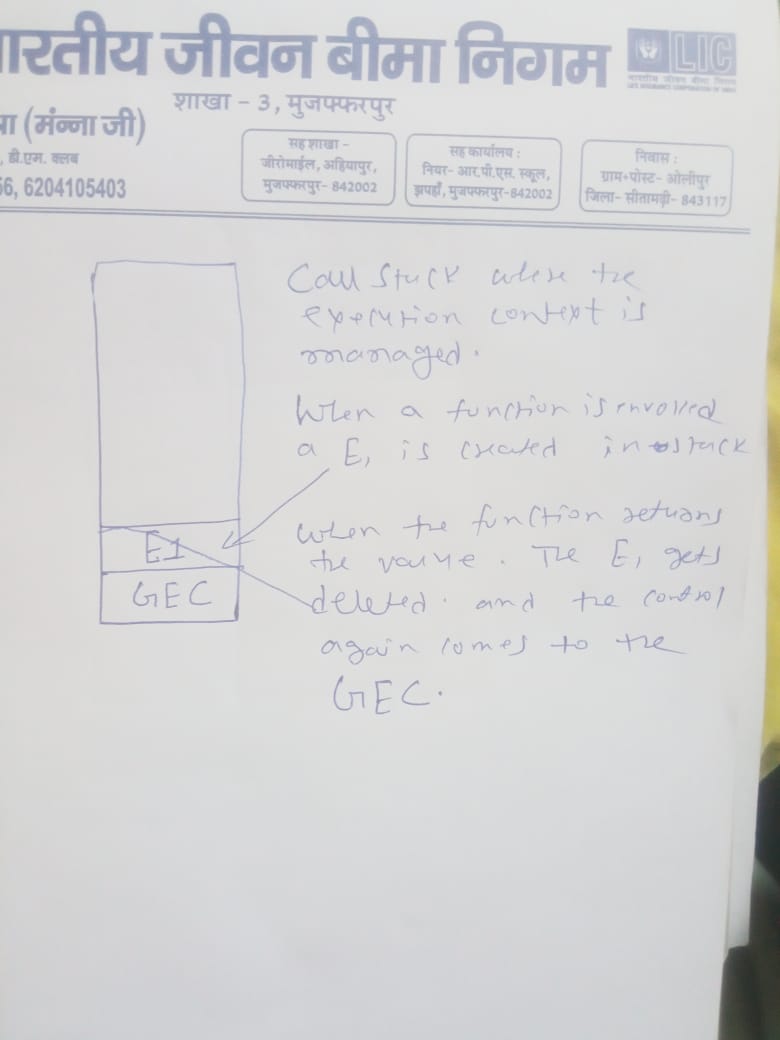 भारतीय जीवन बीमा निगम
LIC
भारतीय जीवन बीमा निगम
LIFE INSURANCE CORPORATION OF INDIA
शाखा - 3, मुजफ्फरपुर
(मंन्ना जी)
डी.एम. क्लब
56, 6204105403
सह शाखा -
जीरोमाईल, अहियापुर,
मुजफ्फरपुर- 842002
सह कार्यालय :
नियर- आर.पी.एस. स्कूल,
झपहाँ, मुजफ्फरपुर-842002
निवास :
ग्राम+पोस्ट- ओलीपुर
जिला- सीतामढ़ी- 843117
Call Stack where the
execution context is
managed.
When a function is invoked
a E1 is created in stack
When the function returns
the value. The E1 gets
deleted. and the control
again comes to the
GEC.
E1
GEC